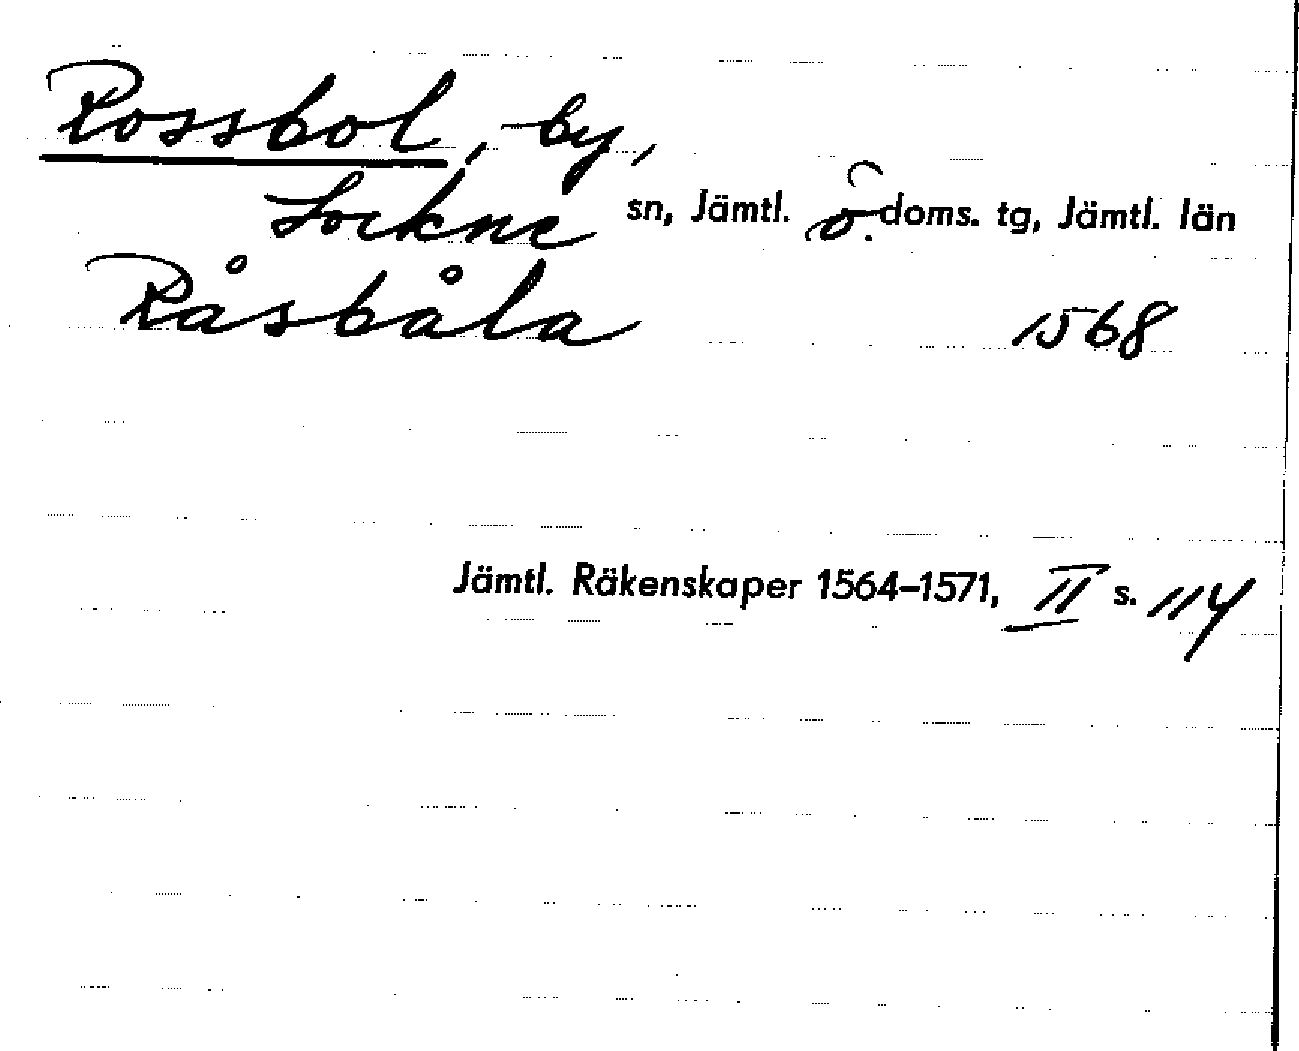 Rossbol, by,
Lockne sn, Jämtl. ö. doms. tg, Jämtl. län
Råsbåla 1568
Jämtl. Räkenskaper 1564–1571, II s. 114